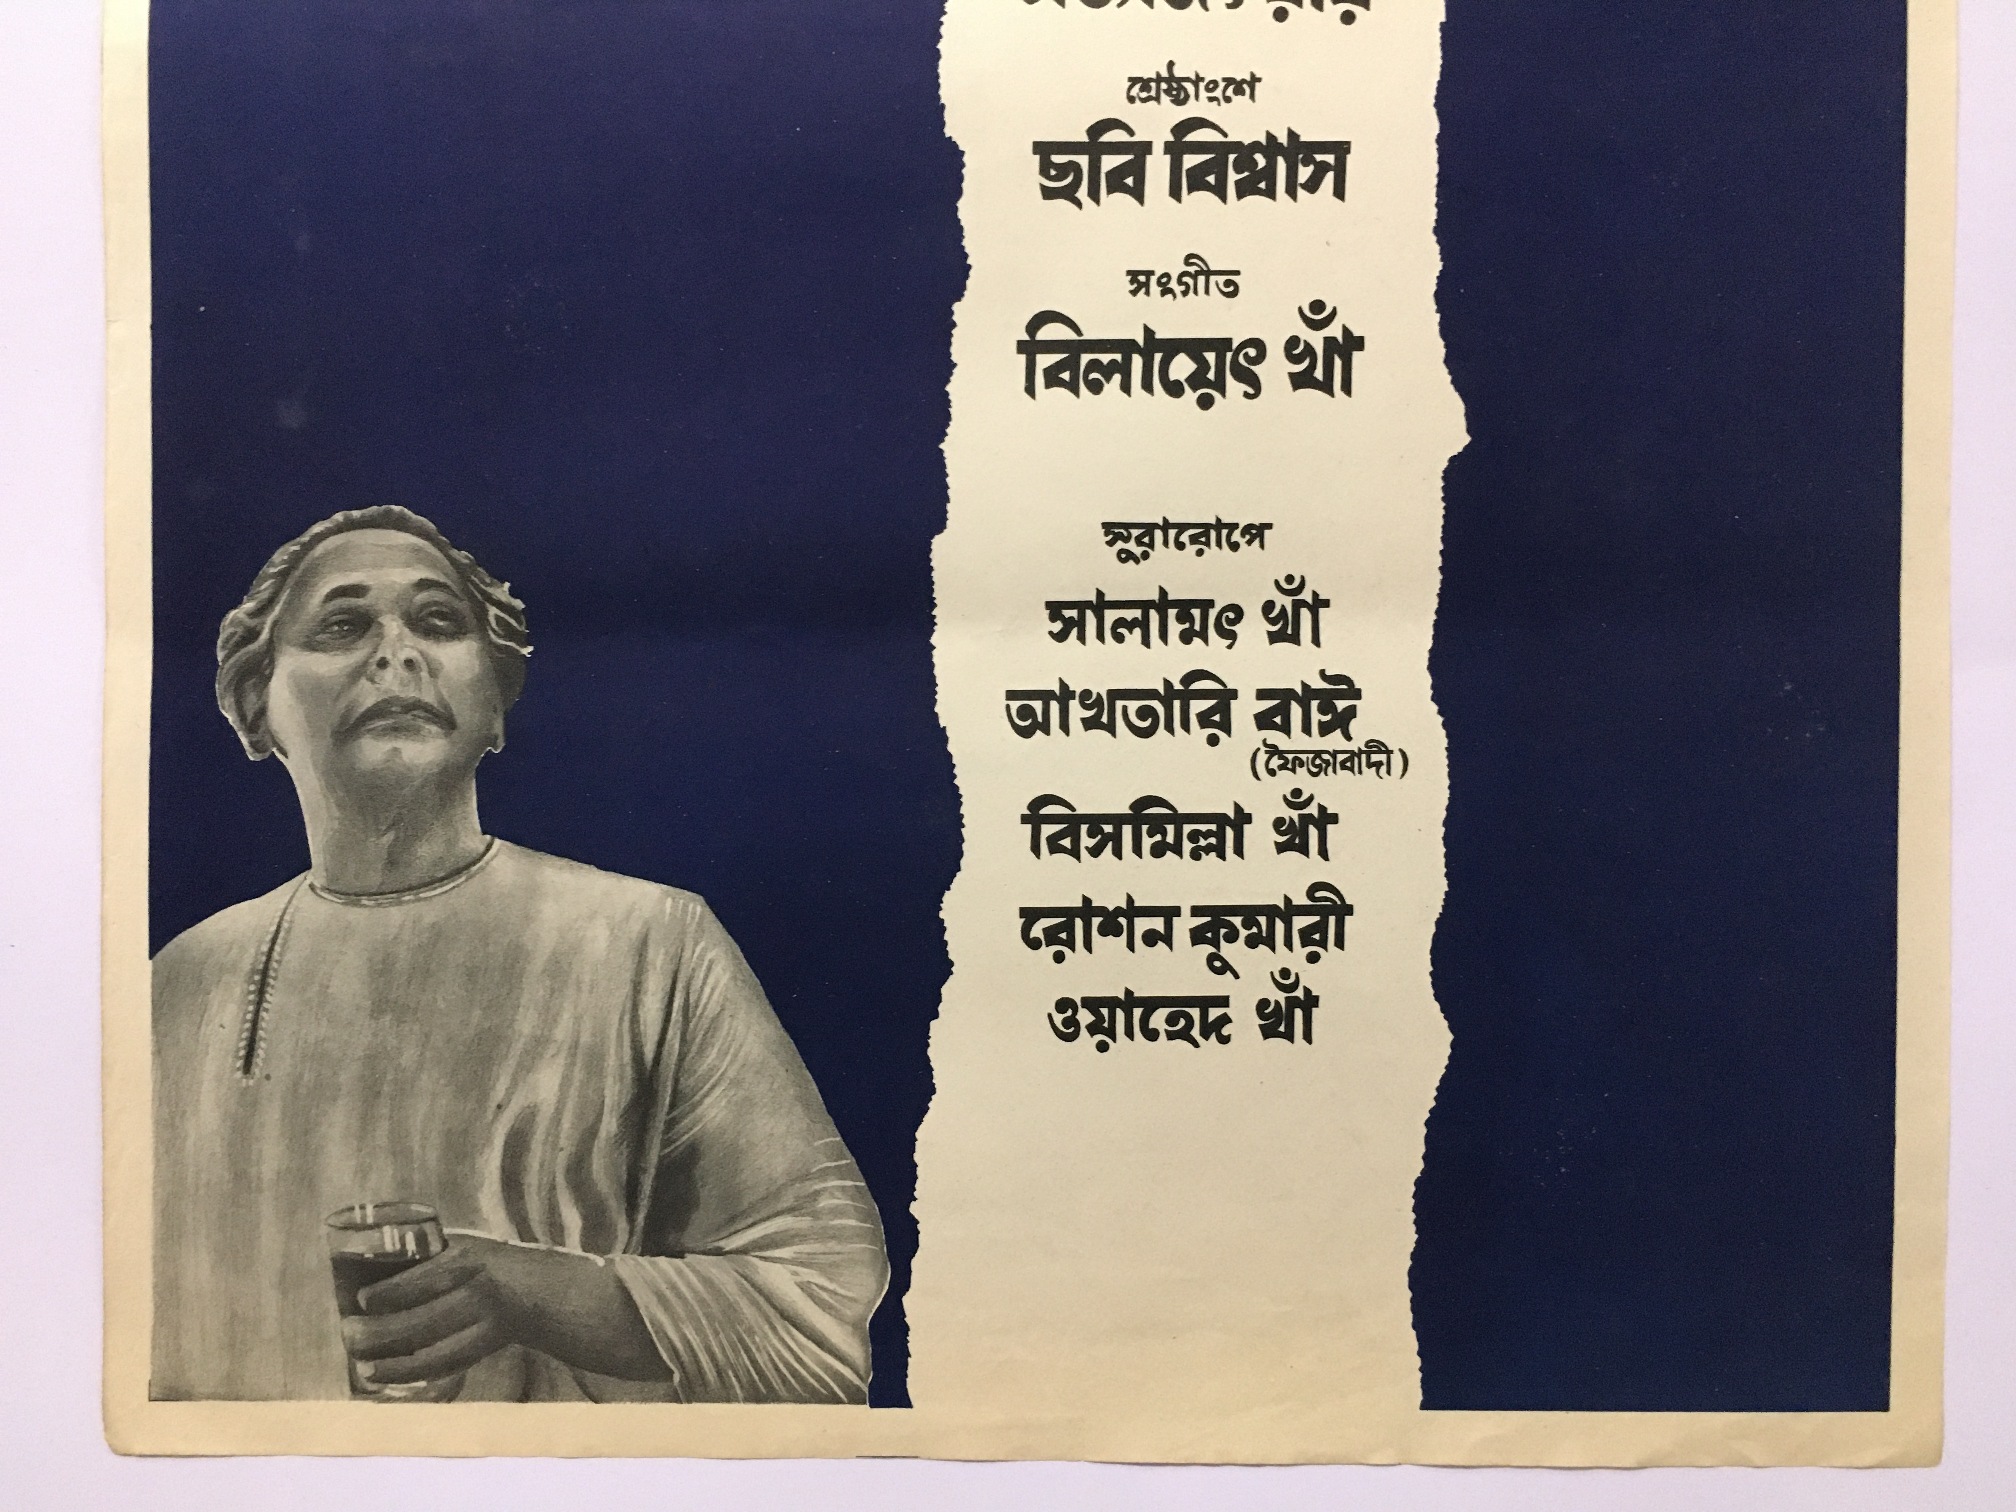 শ্রেষ্ঠাংশে
ছবি বিশ্বাস
সংগীত
বিলায়েৎ খাঁ
সুরারোপে
সালামৎ খাঁ
আখতারি বাঈ
(ফৈজাবাদী)
বিসমিল্লা খাঁ
রোশন কুমারী
ওয়াহেদ খাঁ